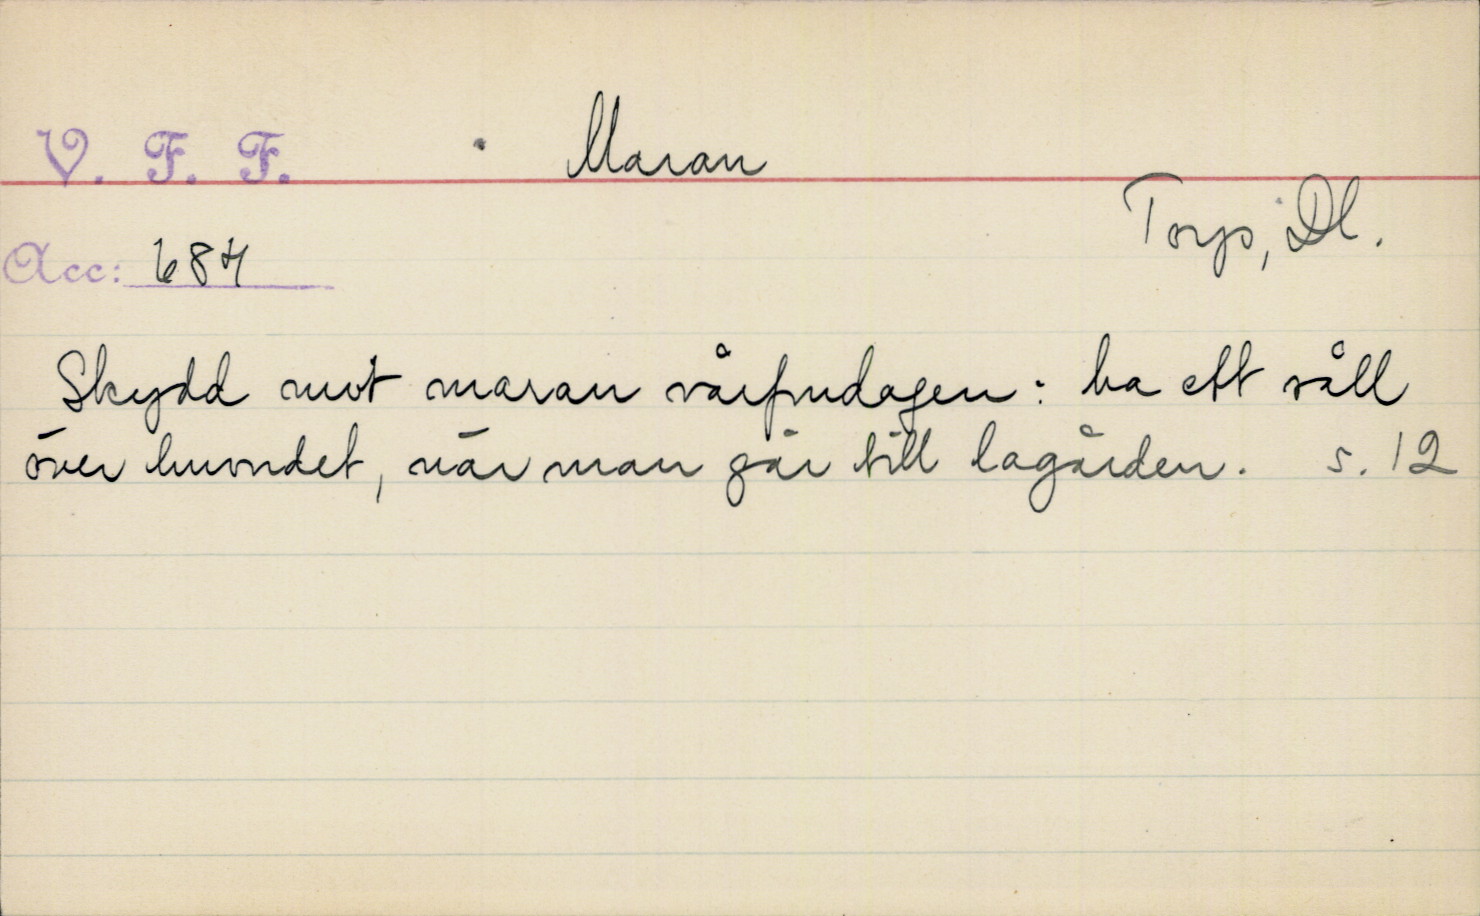 V. F. F. Maran
Torp, Dl.
Acc: 684
Skydd mot maran vårfrudagen: ha ett såll
över huvudet, när man går till lagården. s. 12